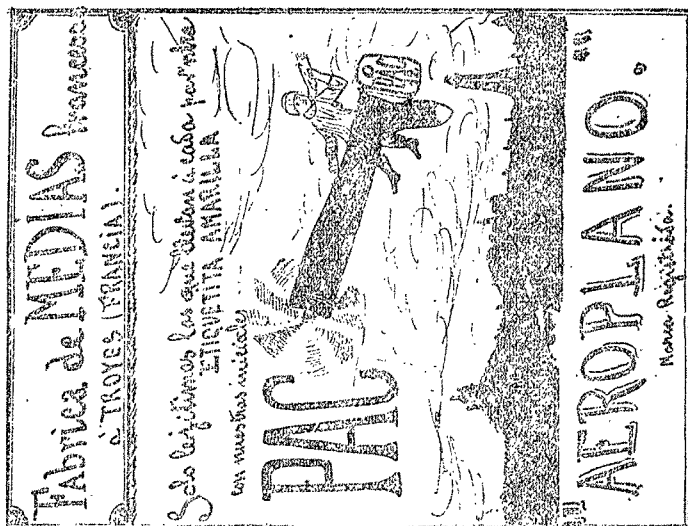 Fábrica de MEDIAS francesas
à TROYES (FRANCIA).
Solo lejitimas las que llevan á cada par ntra
ETIQUETITA AMARILLA
con nuestras iniciales
PAC
PAC
"AEROPLANO"
Marca Registrada.